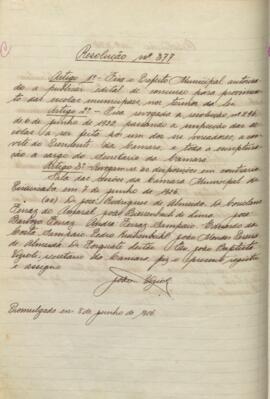 Resolução Nº 377
Artigo 1º - Fica o Prefeito Municipal autorisa-
do a publicar edital de concurso para provimen-
to das escolas municipaes nos termos da lei.
Artigo 2º - Fica revogada a resolução nº
de 6 de junho de passando a inspecção das es-
colas a ser feita por um dos vereadores, a con-
vite do Presidente da Camara, e toda a escriptura-
ção a cargo do Secretario da Camara.
Artigo 3º Revogam-se as disposições em contrario.
Sala das sessões da Camara Municipal de
Piracicaba em de junho de 1906.
(aa) Dr José Rodrigues de Almeida, Dr Coriolano
Ferraz do Amaral, João de Lima, José
Barbosa Ferraz, Ferraz Sampaio, Eduardo da
Costa Sampaio, Pedro João Mendes Pereira
de Almeida, Dr Torquato Leitão. Eu, João Baptista
secretario da Camara, fiz o presente registro
e assigno.
João
Promulgada em 8 de junho de 1906